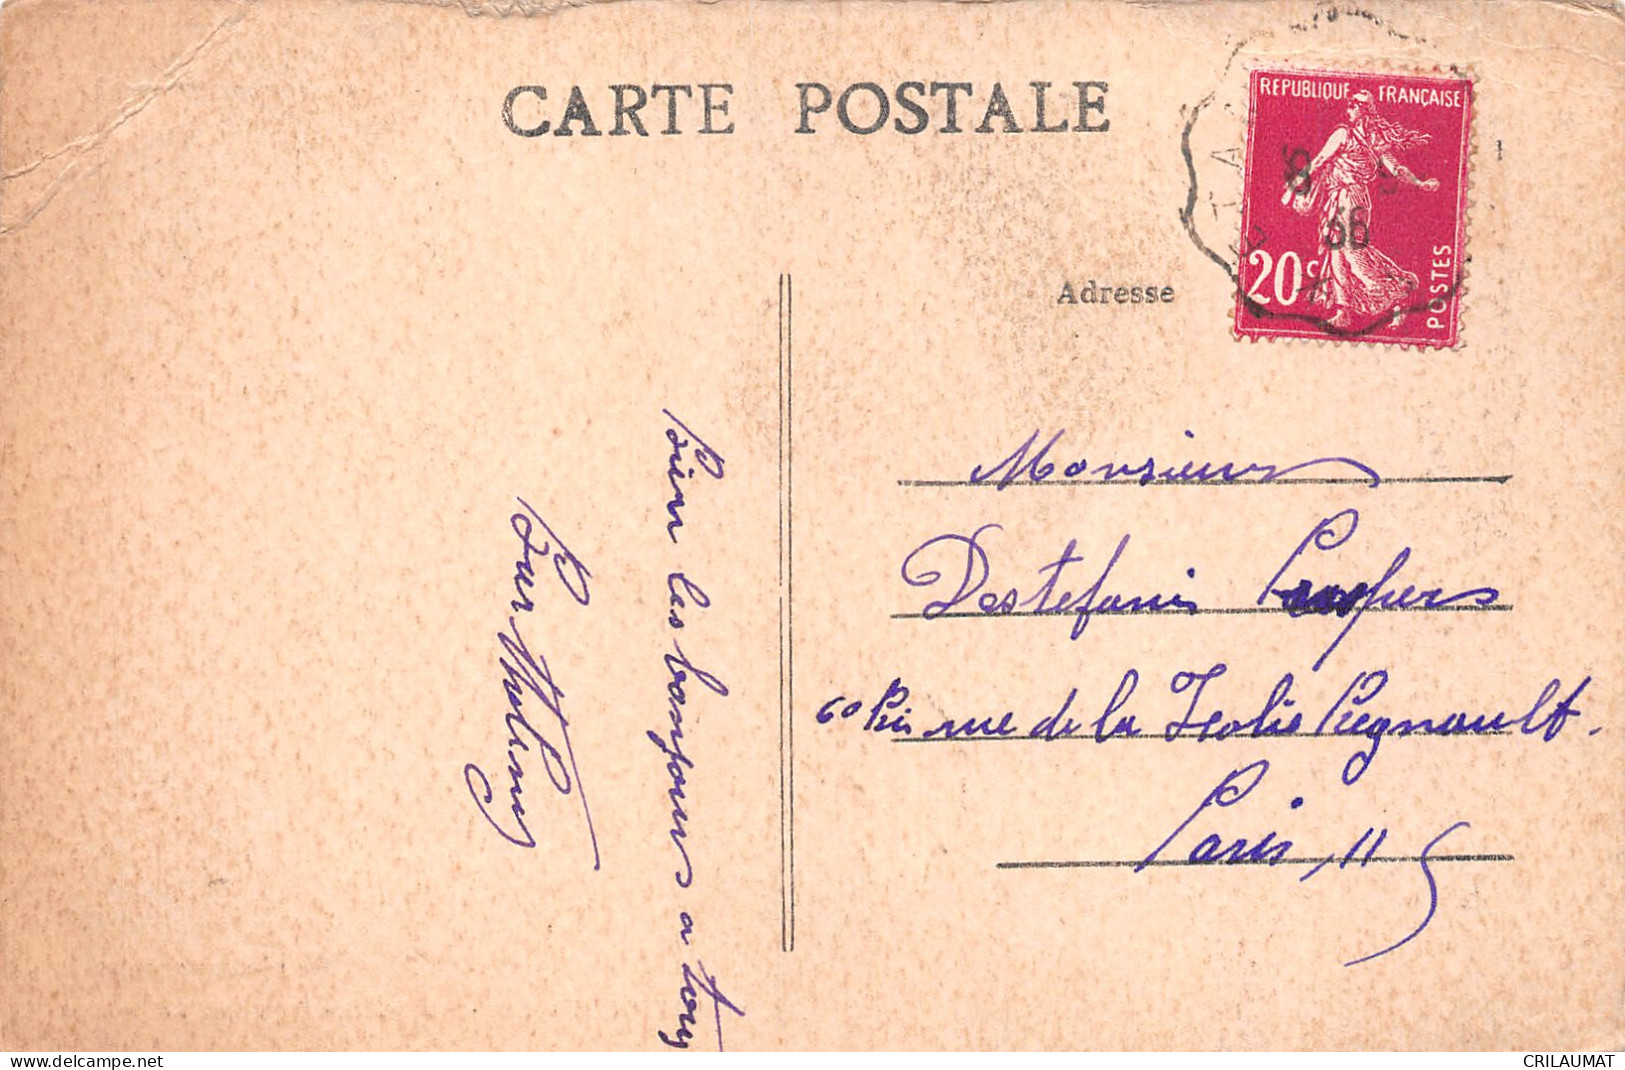 CARTE POSTALE
RÉPUBLIQUE FRANÇAISE
20c
POSTES
8
36
Adresse
Bien les bonjours a tous
Monsieur
Destefanis
60 bis rue de la Folie Regnault.
Paris 11
delcampe.net
CRILAUMAT